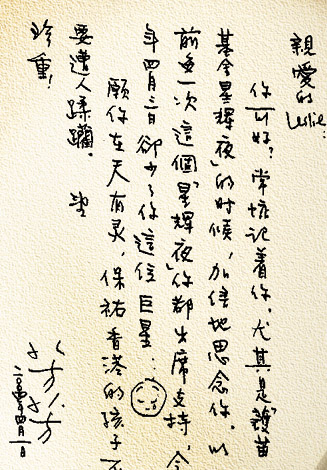 親愛的 Leslie:
你可好?常惦記着你,尤其是"護苗
基金星輝夜"的时候,加倍地思念你,以
前每一次這個"星輝夜"你都出席支持,今
年四月三日卻少了你這位巨星…
願你在天有灵,保祐香港的孩子不
要遭人蹂躪。 望
珍重!
二〇〇四年四月一日